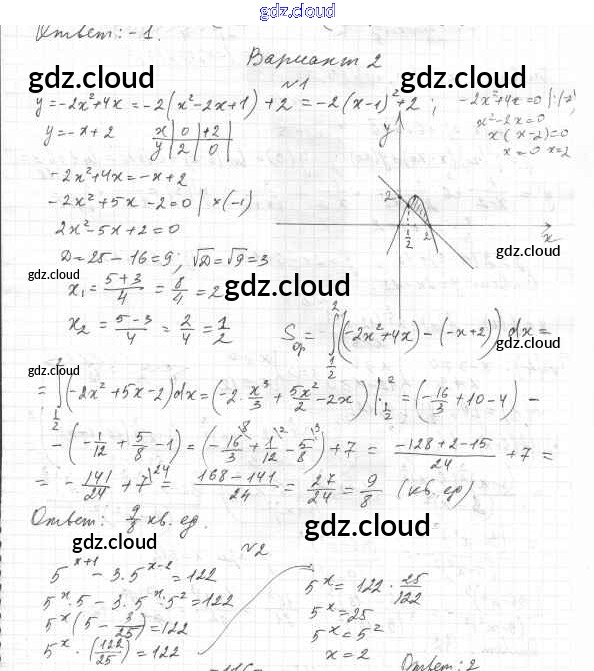 gdz.cloud
Ответ: -1.
Вариант 2
gdz.cloud gdz.cloud
№1
y=-2x²+4x=-2(x²-2x+1)+2=-2(x-1)²+2; -2x²+4x=0 |:(-2)
x²-2x=0
x(x-2)=0
x=0 x=2
y=-x+2 x | 0 | +2 |
y | 2 | 0 |
y
-2x²+4x=-x+2
-2x²+5x-2=0 | ×(-1)
2
2x²-5x+2=0
1/2 2 x
D=25-16=9; √D=√9=3
gdz.cloud
gdz.cloud
gdz.cloud
x₁=(5+3)/4=8/4=2
x₂=(5-3)/4=2/4=1/2 Sфр=∫(1/2)(2)((-2x²+4x)-(-x+2))dx=
gdz.cloud
gdz.cloud
=∫(1/2)(2)(-2x²+5x-2)dx=(-2·x³/3+5x²/2-2x)|(1/2)(2)=(-16/3+10-4)-
-(-1/12+5/8-1)=(-16/3+1/12-5/8)+7=(-128+2-15)/24+7=
=-141/24+7=(168-141)/24=27/24=9/8 (кв. ед)
Ответ: 9/8 кв. ед.
gdz.cloud
gdz.cloud
№2
5^(x+1)-3·5^(x-2)=122
5^x·5-3·5^x·5²=122
5^x(5-3/25)=122
5^x·(122/25)=122
5^x=122·25/122
5^x=25
5^x=5²
x=2
gdz.cloud
Ответ: 2
-116-